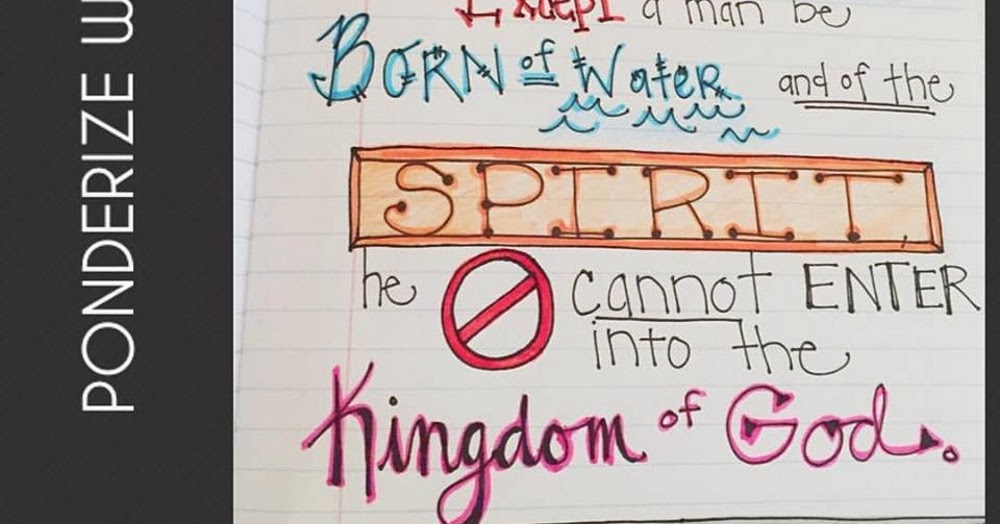 PONDERIZE W
Except a man be
BORN of Water and of the
SPIRIT,
he cannot ENTER
into the
Kingdom of God.